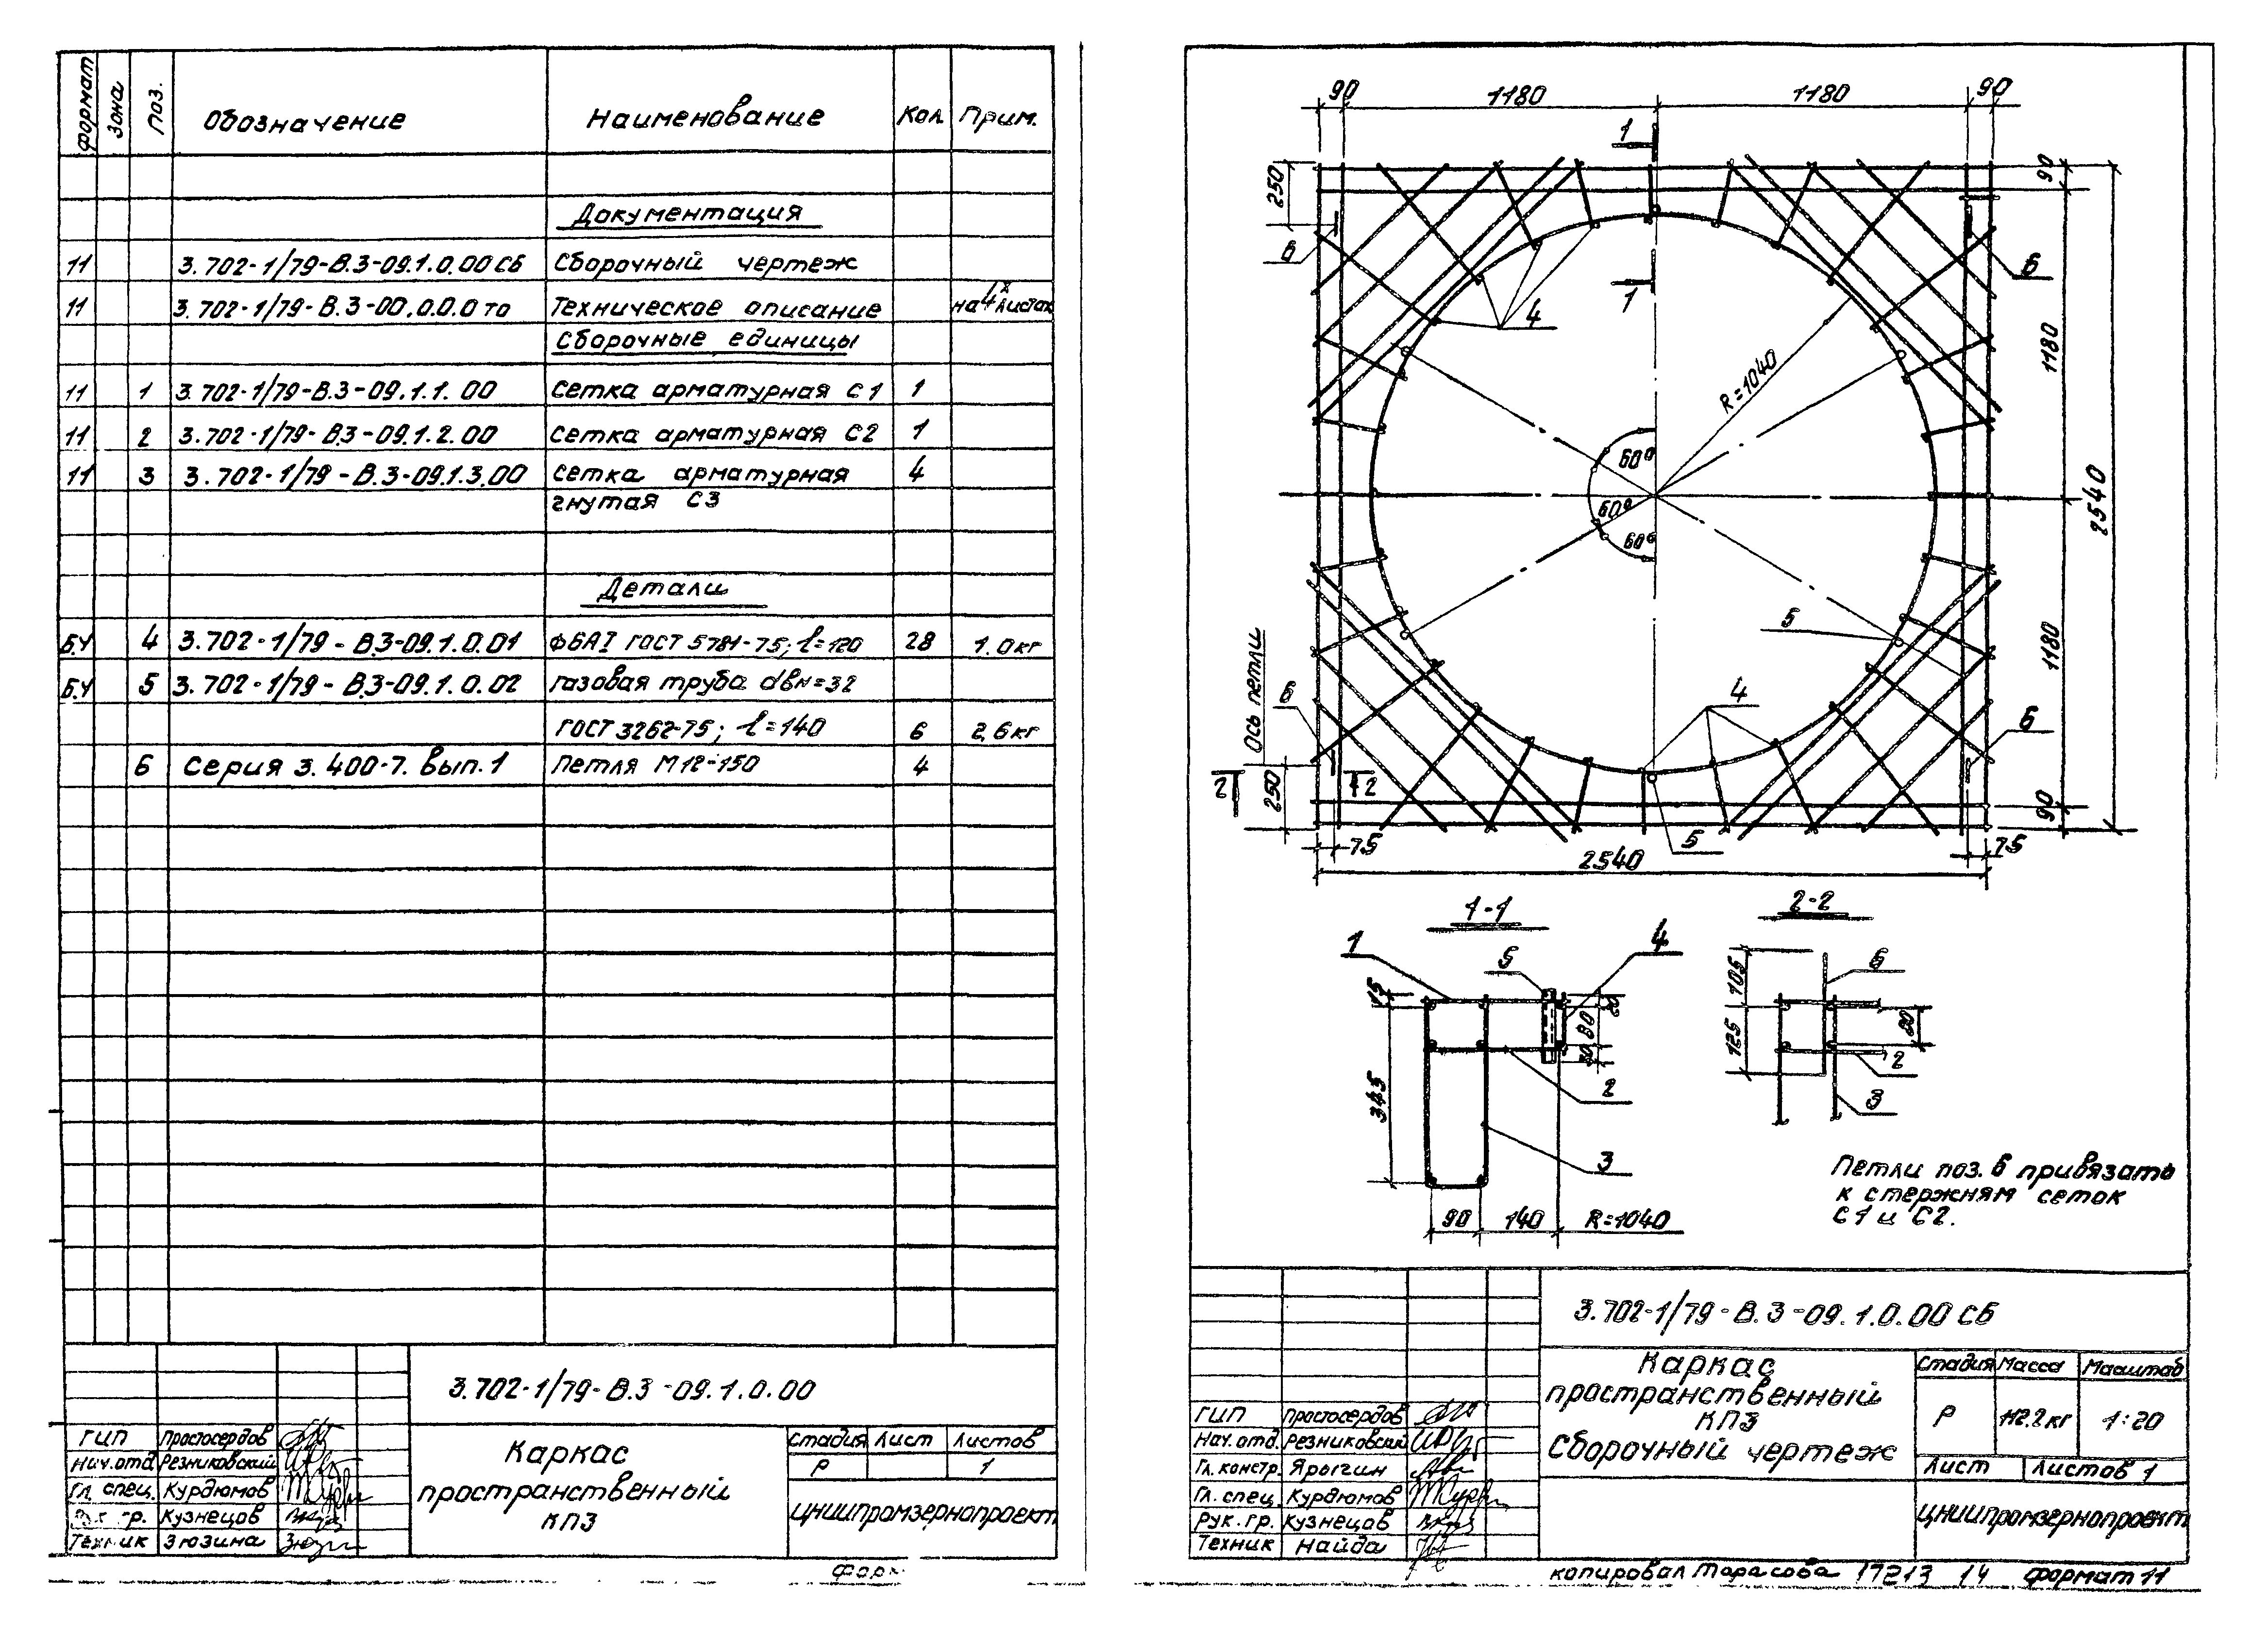 формат Зона Поз. Обозначение Наименование Кол. Прим.
Документация
11 3.702-1/79-В.3-09.1.0.00 СБ Сборочный чертеж
11 3.702-1/79-В.3-00.0.0.0 ТО Техническое описание на 4х листах
Сборочные единицы
11 1 3.702-1/79-В.3-09.1.1.00 Сетка арматурная С1 1
11 2 3.702-1/79-В.3-09.1.2.00 Сетка арматурная С2 1
11 3 3.702-1/79-В.3-09.1.3.00 Сетка арматурная 4
гнутая С3
Детали
Б.Ч 4 3.702-1/79-В.3-09.1.0.01 ф6АI ГОСТ 5781-75; l=120 28 1.0кг
Б.Ч 5 3.702-1/79-В.3-09.1.0.02 газовая труба dвн=32
ГОСТ 3262-75; l=140 6 2,6кг
6 Серия 3.400-7. вып.1 Петля М12-150 4
3.702-1/79-В.3-09.1.0.00
ГИП Простосердов
Нач.отд. Резниковский
Гл. спец. Курдюмов
гр. Кузнецов
Техник Зюзина
Каркас
пространственный
КП3
Стадия Лист Листов
Р 1
ЦНИИпромзернопроект
90 1180 1180 90
1
250
90
6 6
4 1
R=1040
1180
60°
60°
60°
2540
5
1180
Ось петли
6 4 6
2 2
250 5 90
75 75
2540
1-1 2-2
1 5 4
15 20
80
40
345
2
3
90 140 R=1040
105 6
125 80
2
3
Петли поз. 6 привязать
к стержням сеток
С1 и С2.
3.702-1/79-В.3-09.1.0.00 СБ
Каркас
пространственный
КП3
Сборочный чертеж
Стадия Масса Масштаб
Р 112.2кг 1:20
Лист Листов 1
ЦНИИпромзернопроект
ГИП Простосердов
Нач.отд. Резниковский
Гл. констр. Ярыгин
Гл. спец. Курдюмов
Рук. гр. Кузнецов
Техник Найда
копировал Тарасова 17213 14 формат 11